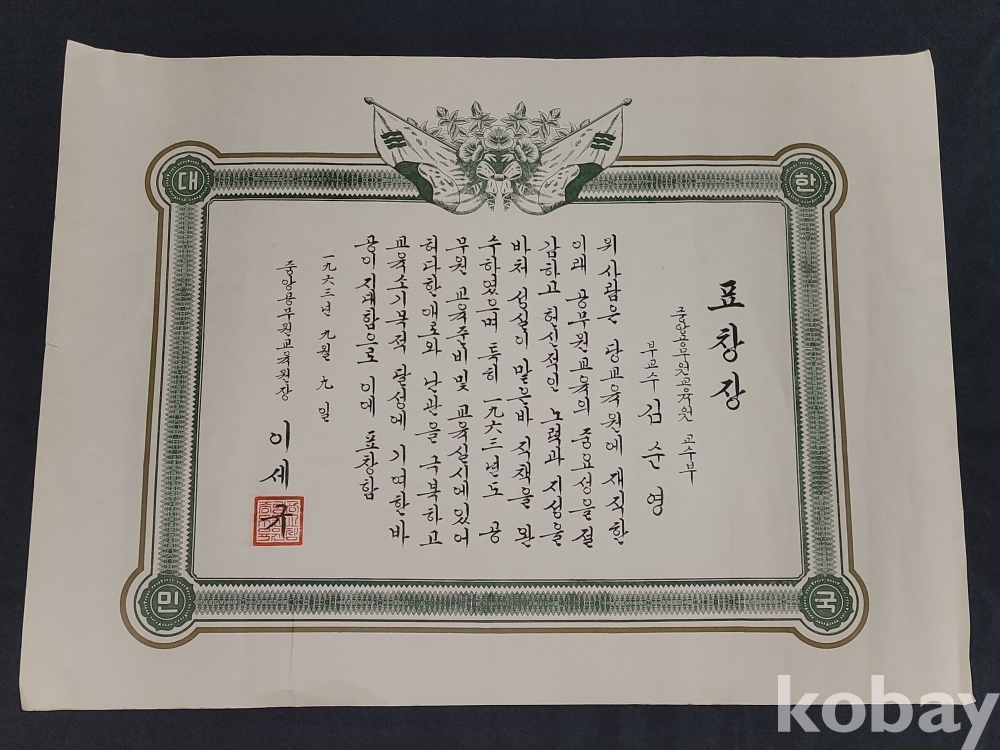 대한민국
표창장
중앙공무원교육원 교수부
부교수 김순영
위 사람은 당교육원에 재직한
이래 공무원교육의 중요성을 절
감하고 헌신적인 노력과 지성을
바쳐 성실이 맡은바 직책을 완
수하였으며 특히 一九六三년도 공
무원 교육준비 및 교육실시에 있어
허다한 애로와 난관을 극복하고
교육소기목적 달성에 기여한 바
공이 지대함으로 이에 표창함
一九六三년 九월 九일
중앙공무원교육원장 이세
kobay